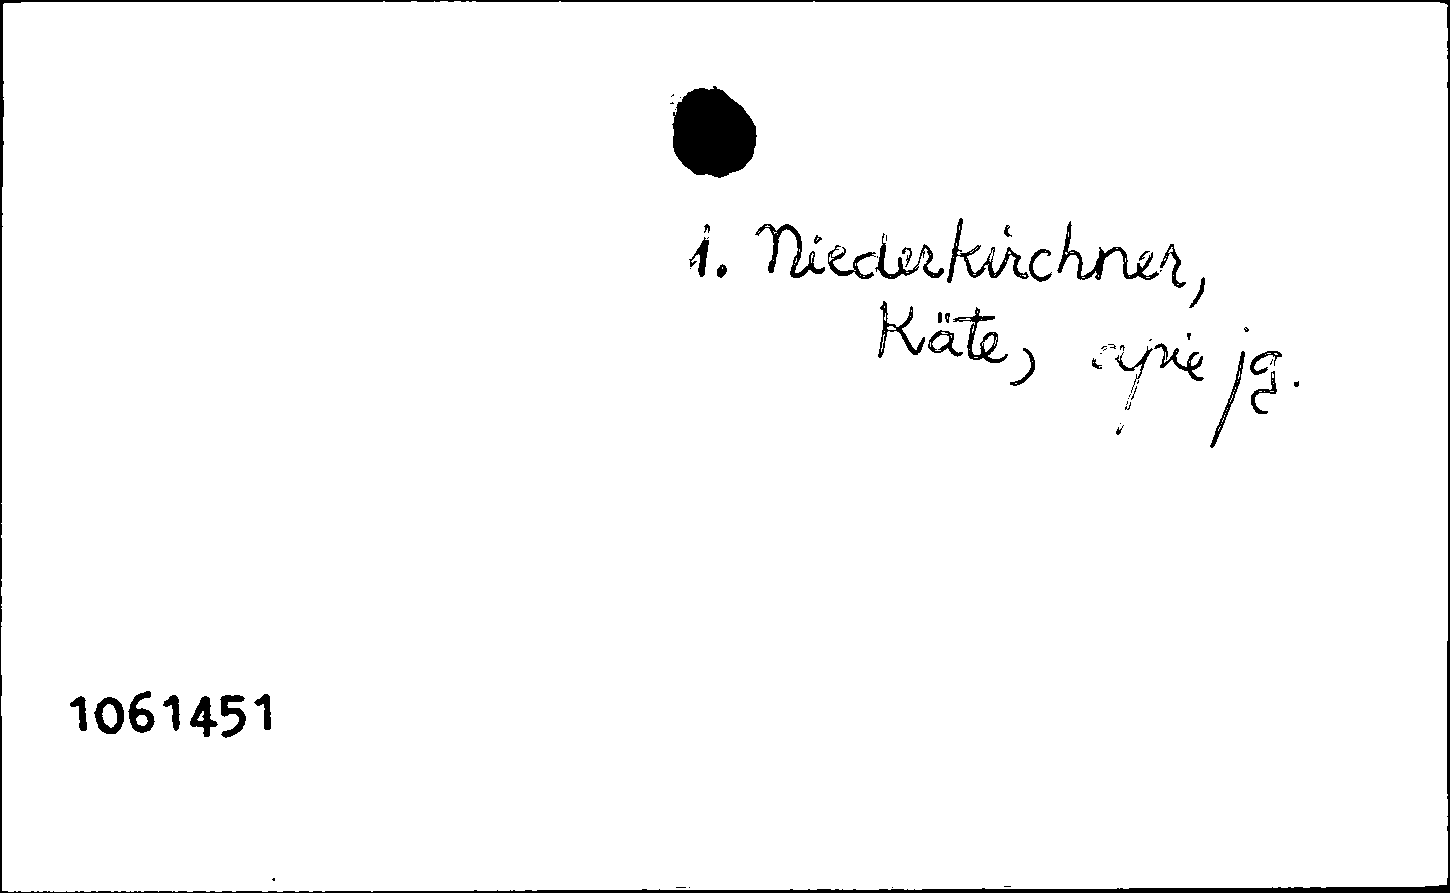 1. Niederkirchner,
Käte, apie ją.
1061451